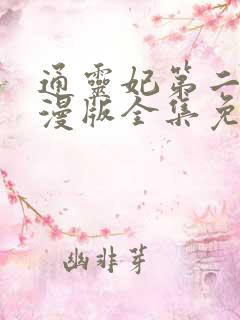 通靈妃第二
漫版全集免
幽非芽